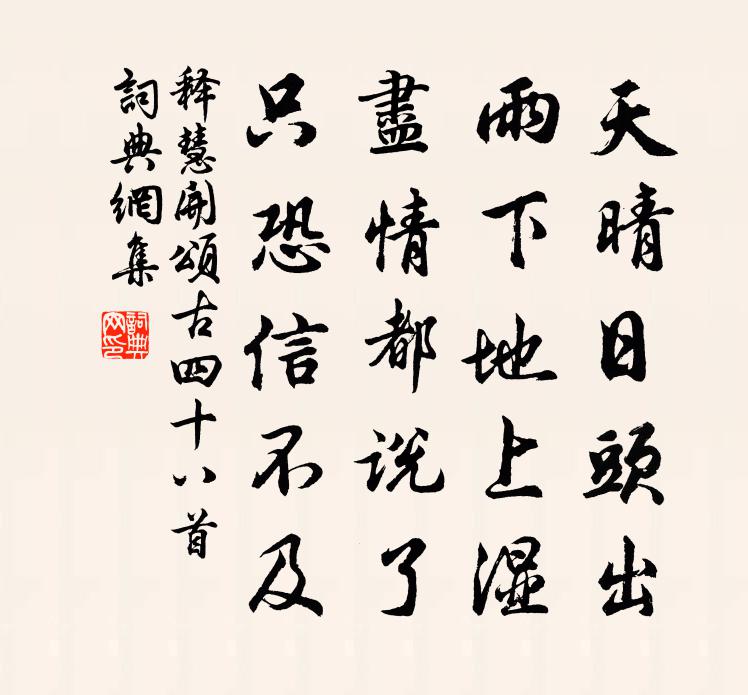 天晴日頭出
雨下地上湿
盡情都説了
只恐信不及
释慧開頌古四十八首
詞典網集
詞典网印